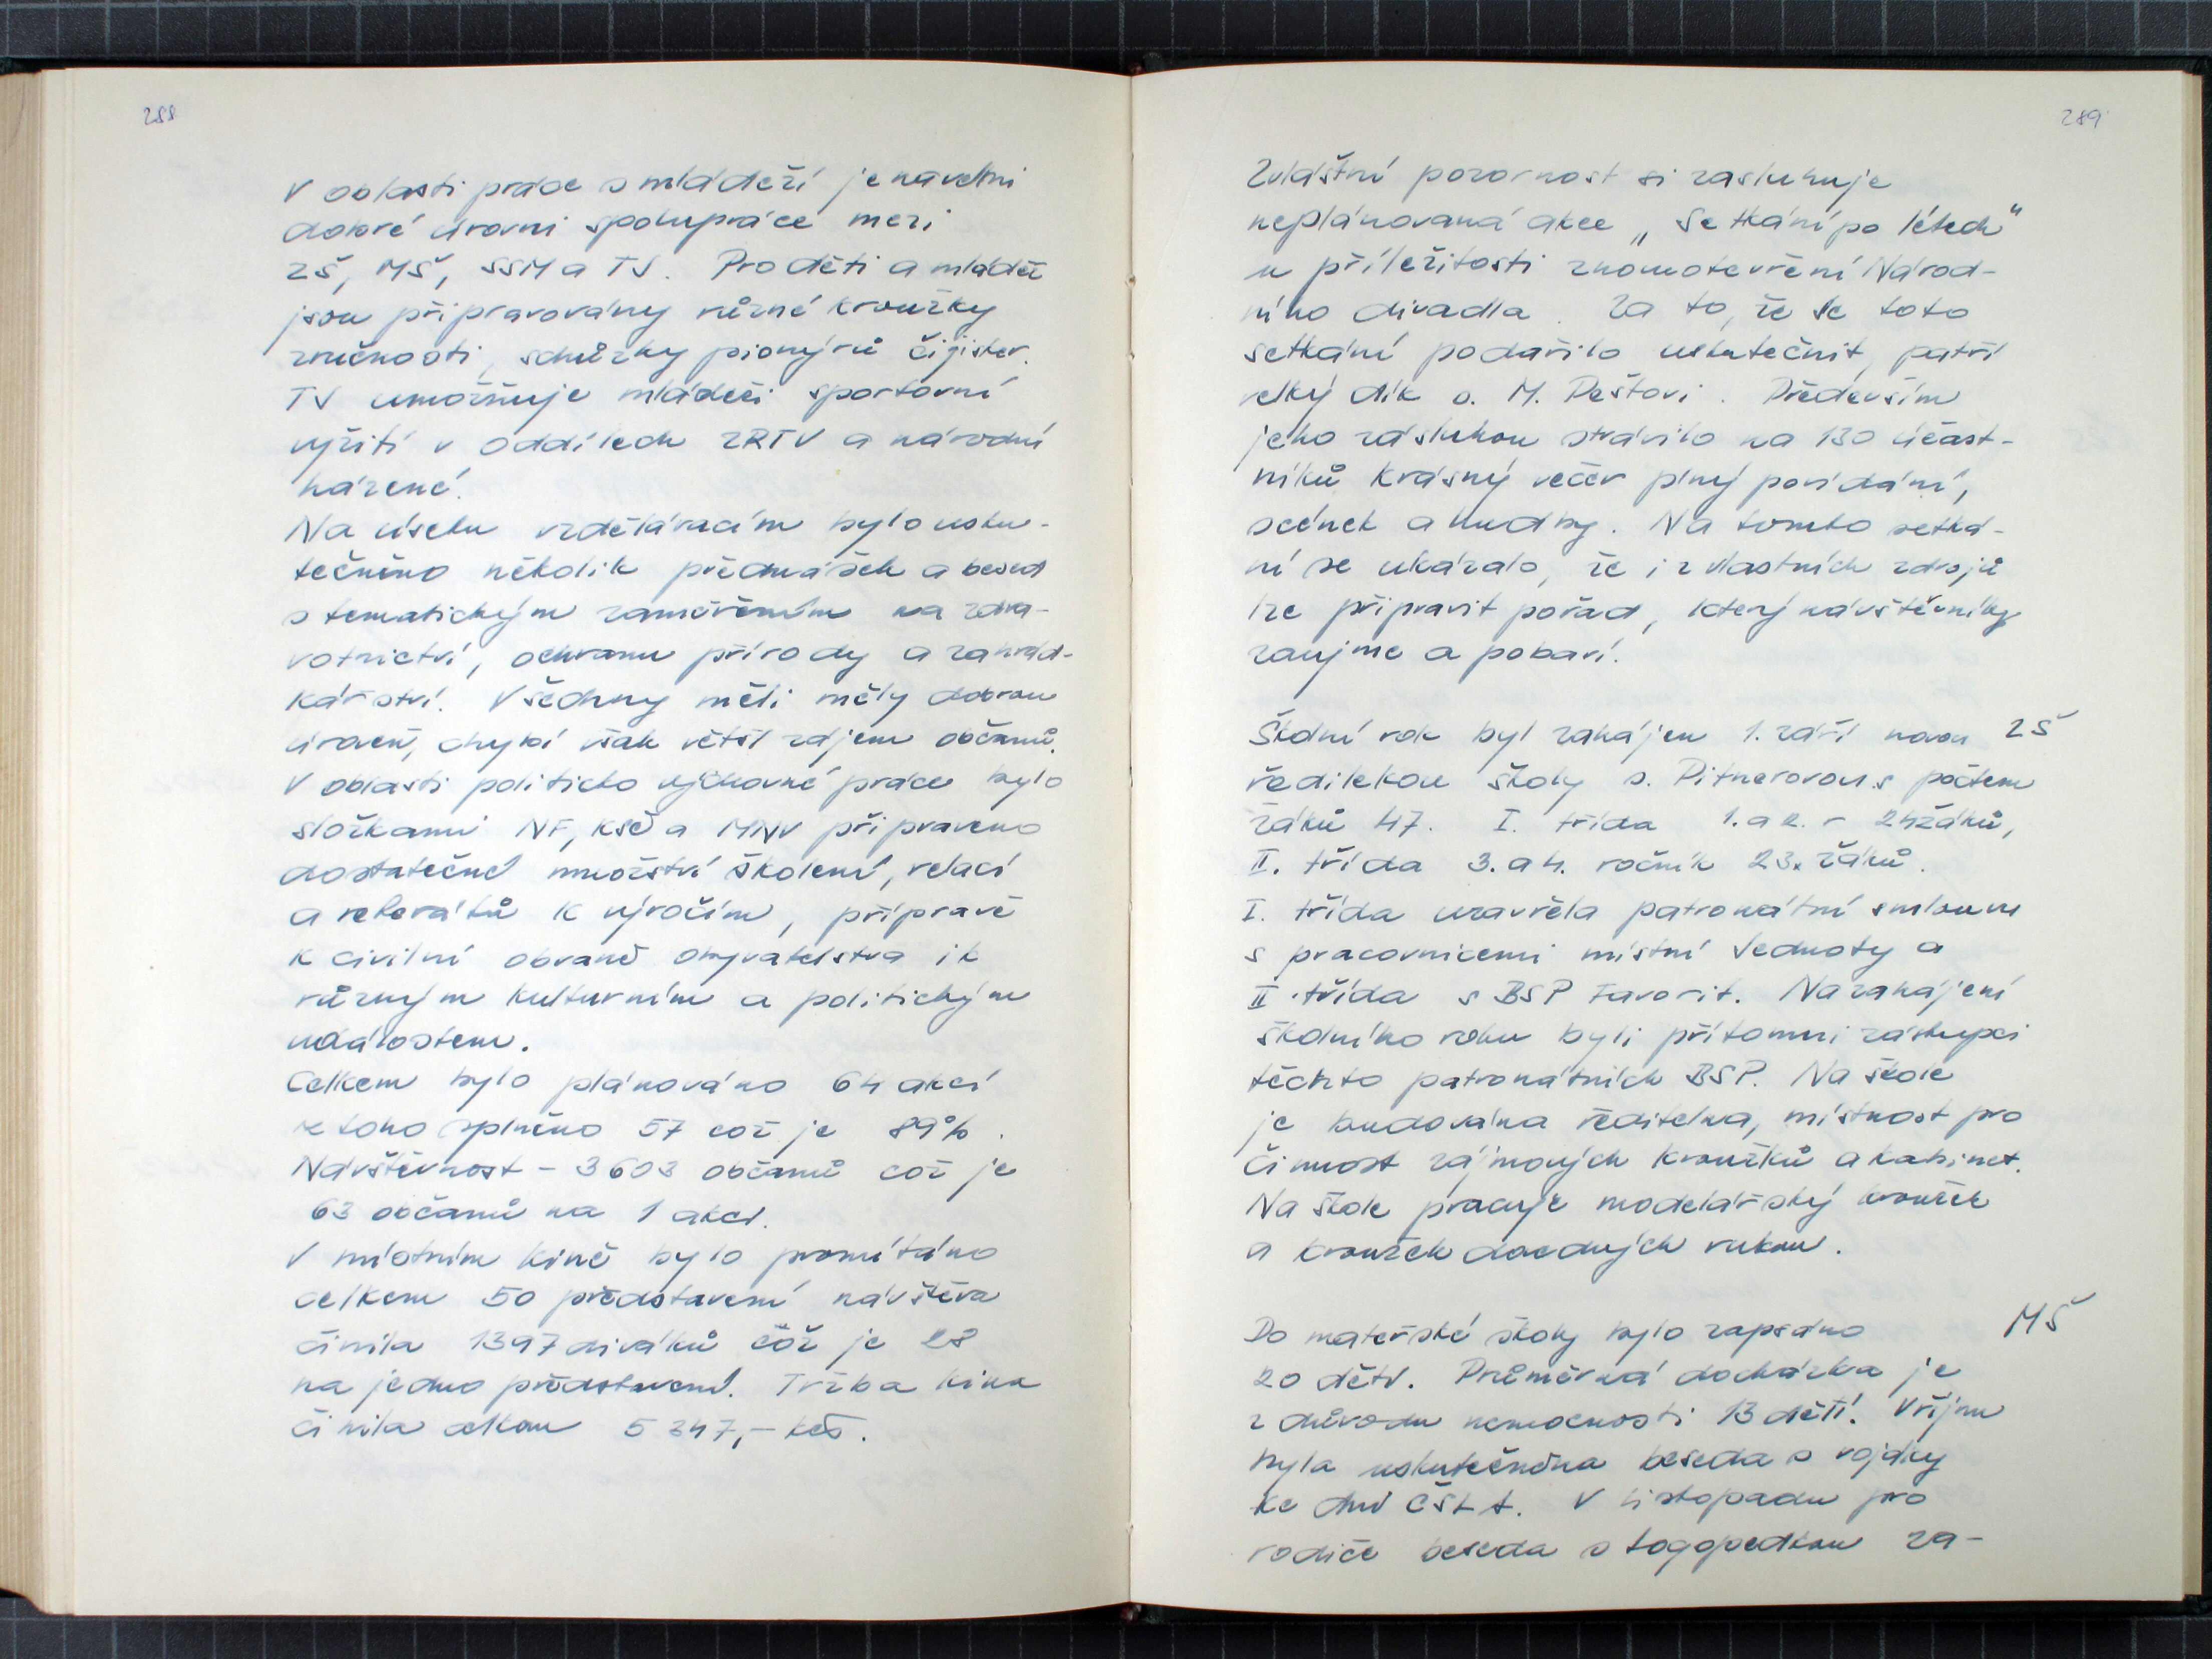 288
V oblasti práce s mládeží je na velmi
dobré úrovni spolupráce mezi
ZŠ, MŠ, SSM a TJ. Pro děti a mládež
jsou připravovány různé kroužky
zručnosti, schůzky pionýrů či jisker.
TJ umožňuje mládeži sportovní
vyžití v oddílech ZRTV a národní
házené.
Na úseku vzdělávacím bylo usku-
tečněno několik přednášek a besed
s tematickým zaměřením na zdra-
votnictví, ochranu přírody a zahrád-
kářství. Všechny měli měly dobrou
úroveň, chybí však větší zájem občanů.
V oblasti politicko výchovné práce bylo
složkami NF, KSČ a MNV připraveno
dostatečné množství školení, relací
a referátů k výročím, přípravě
k civilní obraně obyvatelstva i k
různým kulturním a politickým
událostem.
Celkem bylo plánováno 64 akcí
z toho splněno 57 což je 89%.
Návštěvnost - 3603 občanů což je
63 občanů na 1 akci.
V místním kině bylo promítáno
celkem 50 představení návštěva
činila 1397 diváků což je 28
na jedno představení. Tržba kina
činila celkem 5 347,- Kčs.
289
Zvláštní pozornost si zasluhuje
neplánovaná akce „Setkání po létech"
u příležitosti znovuotevření Národ-
ního divadla. Za to, že se toto
setkání podařilo uskutečnit, patří
velký dík s. M. Peštovi. Především
jeho zásluhou strávilo na 130 účast-
níků krásný večer plný povídání,
scének a hudby. Na tomto setká-
ní se ukázalo, že i z vlastních zdrojů
lze připravit pořad, který návštěvníky
zaujme a pobaví.
Školní rok byl zahájen 1. září novou ZŠ
ředitelkou školy s. Pitnerovou s počtem
žáků 47. I. třída 1. a 2. - 24 žáků,
II. třída 3. a 4. ročník 23 žáků.
I. třída uzavřela patronátní smlouvu
s pracovnicemi místní Jednoty a
II. třída s BSP Favorit. Na zahájení
školního roku byli přítomni zástupci
těchto patronátních BSP. Na škole
je budována ředitelna, místnost pro
činnost zájmových kroužků a kabinet.
Na škole pracuje modelářský kroužek
a kroužek dovedných rukou.
Do mateřské školy bylo zapsáno MŠ
20 dětí. Průměrná docházka je
z důvodu nemocnosti 13 dětí. V říjnu
byla uskutečněna beseda s vojáky
ke dni ČSLA. V listopadu pro
rodiče beseda s logopedkou za-